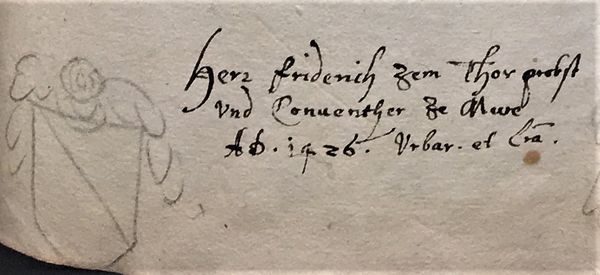 Herr Friderich zem Thor probst
vnd Conuenther ze Mure
AD. 1426. Vrbar. et Lra.